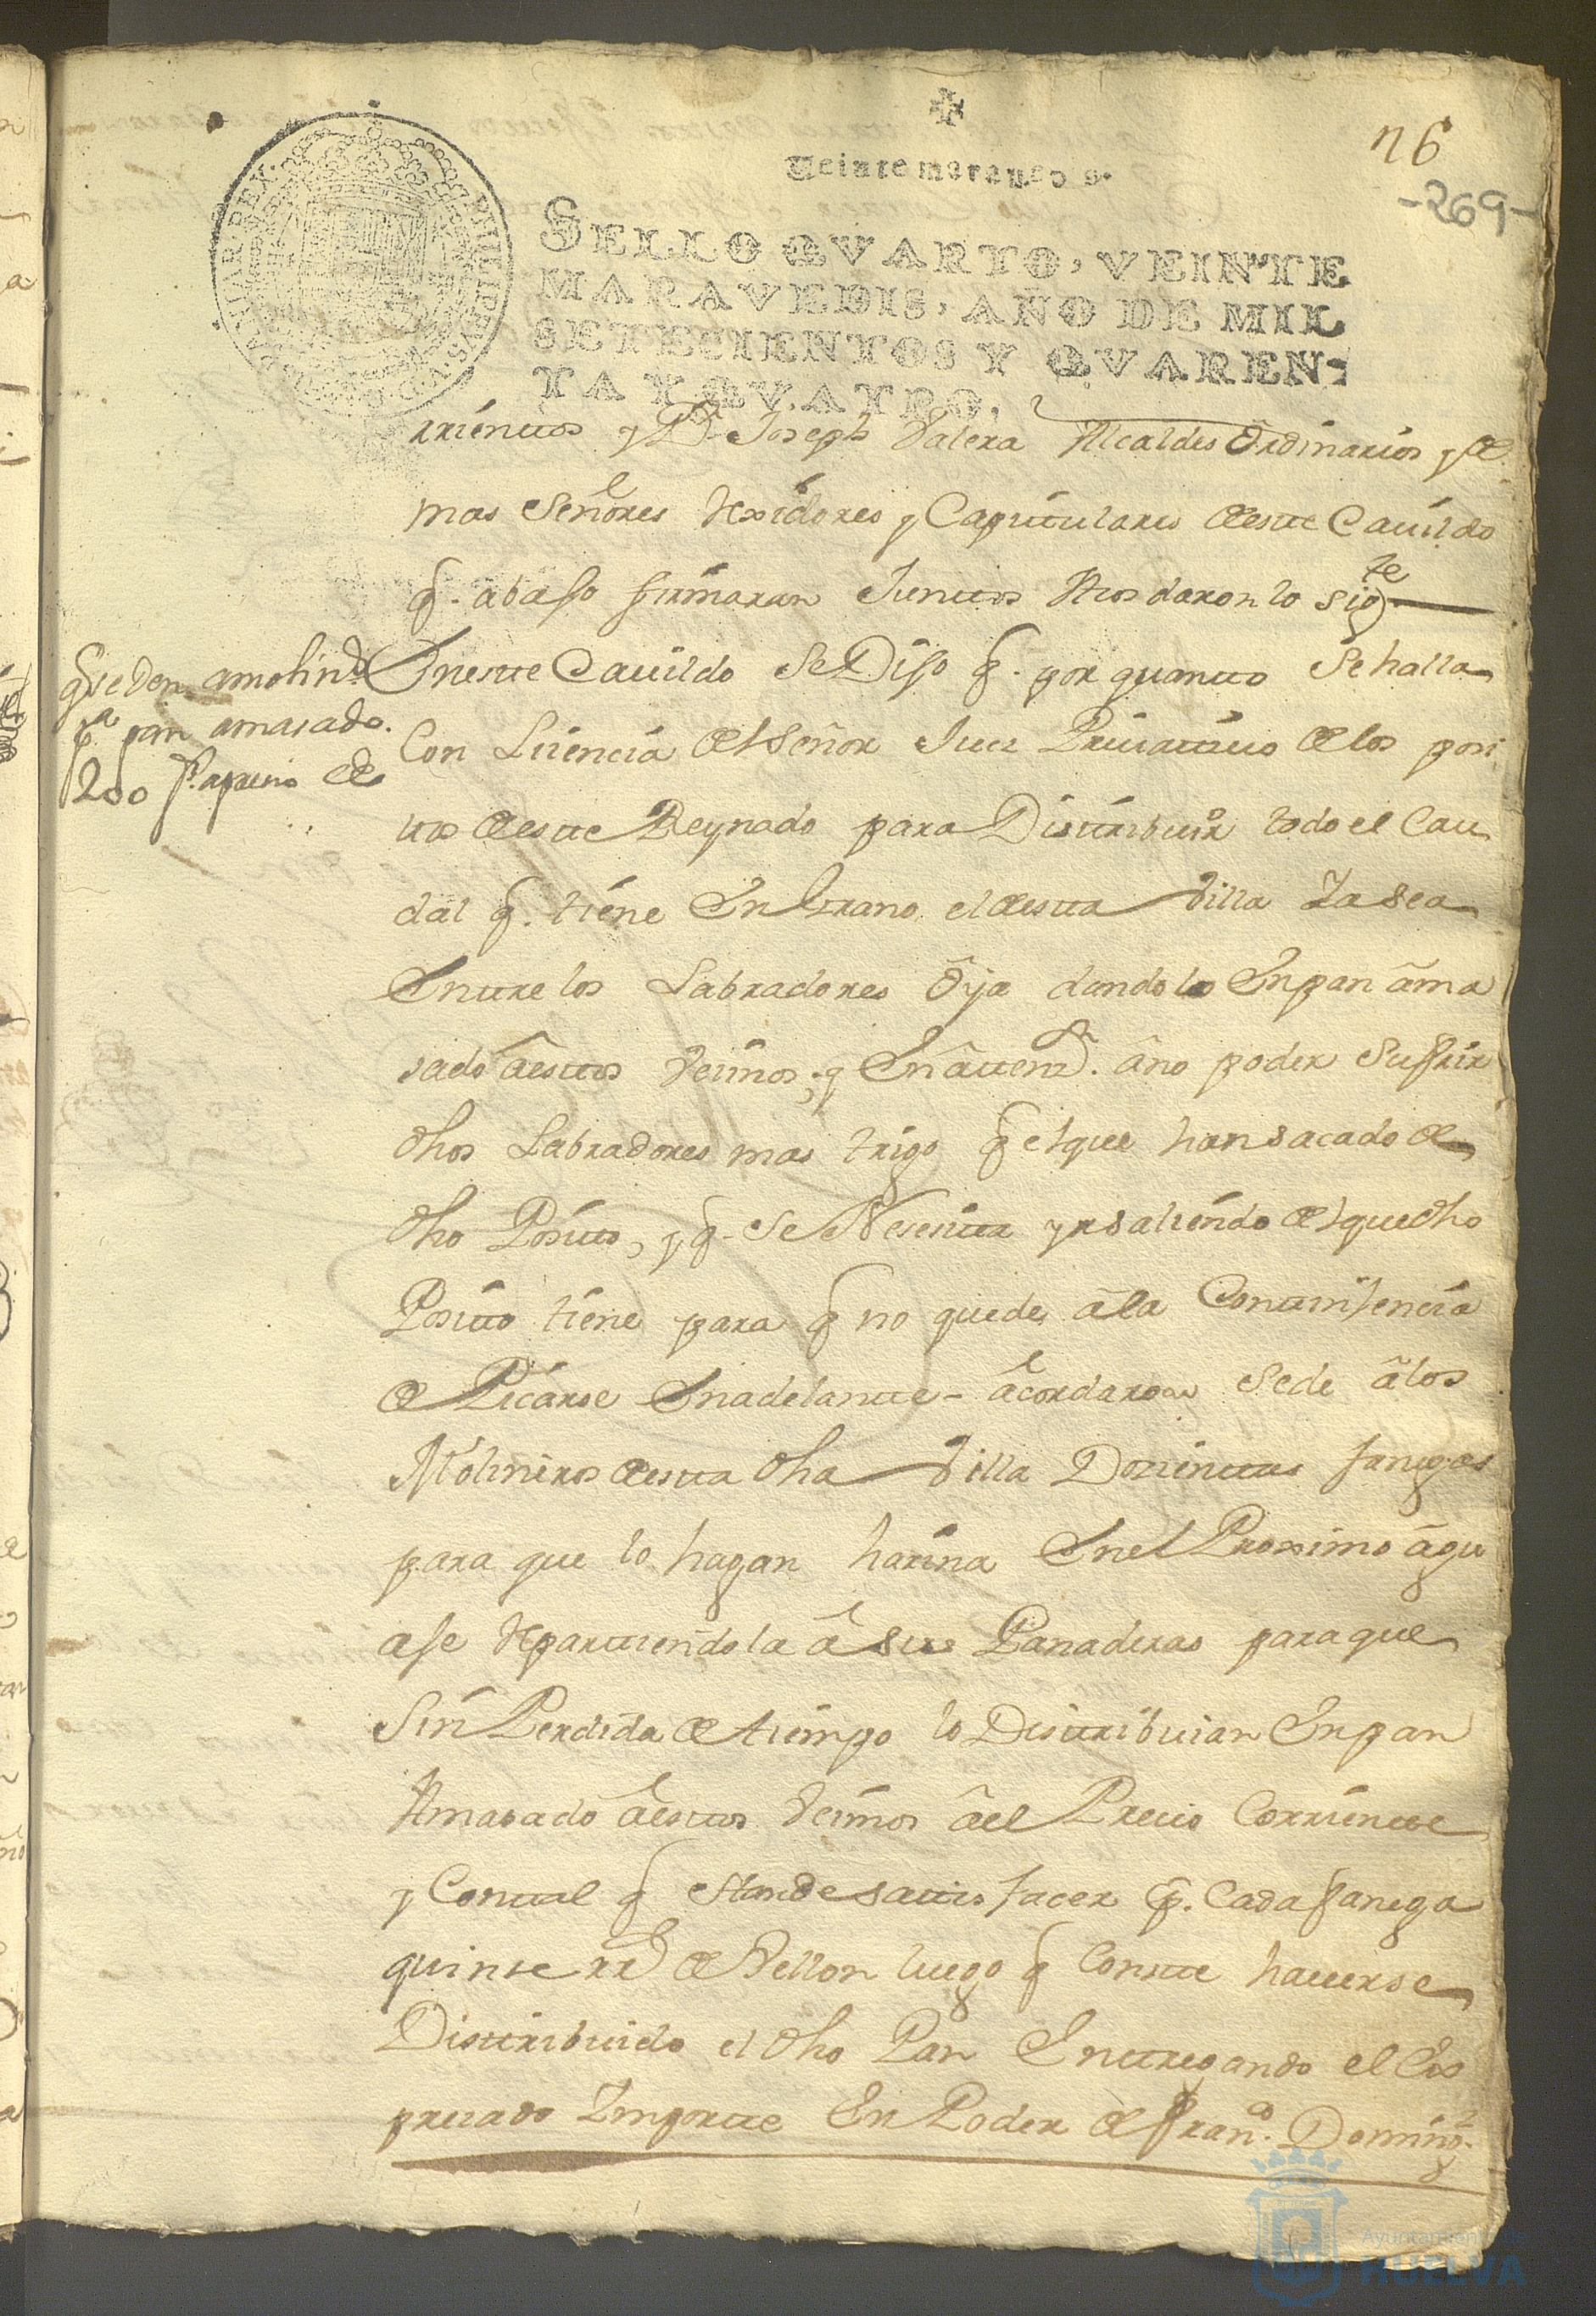 n6
-269-
Veinte maravedis.
SELLO QVARTO, VEINTE
MARAVEDIS, AÑO DE MIL
SETECIENTOS Y QVAREN-
TA Y QVATRO.
rrientos y Dn Joseph Valera Alcaldes Ordinarios y de
mas Señores Rexidores y Capitulares de este Cavildo
q. abajo firmaran Juntos Acordaron lo sigte
En este Cavildo Se Dijo q. por quanto Se halla
Con Lisencia del Señor Juez Privativo de los posi
tos de este Reynado para Distribuir todo el Cau
dal q. tiene En Grano el de esta Villa Ya sea
Entre los Labradores ô ya dandolo En pan âma
sado âestos Vecinos; y En âtenzn. âno poder Sufrir
dhos Labradores mas trigo q el que han sacado de
dho Posito, y q. Se Nesesita yr saliendo del que dho
Posito tiene para q no quede âla Continjencia
de Picarse En adelante - âcordaron Se de âlos
Molineros de esta dha Villa Dozientas fanegas
para que lo hagan harina En el Proximo âgu
aje repartiendola â sus Panaderas para que
Sin Perdida de tiempo lo Distribuian En pan
Amasado âestos Vecinos âel Precio Corriente
y Con tal q han de satisfacer p. Cada fanega
quinse rrs de Vellon luego q Conste haverse
Distribuido el dho Pan Entregando el Ex
presado Importe En Poder de Franco. Domingz
q se den a molinos
pa pan amasado.
200 fs. a presio de
Ayuntamiento de
HUELVA